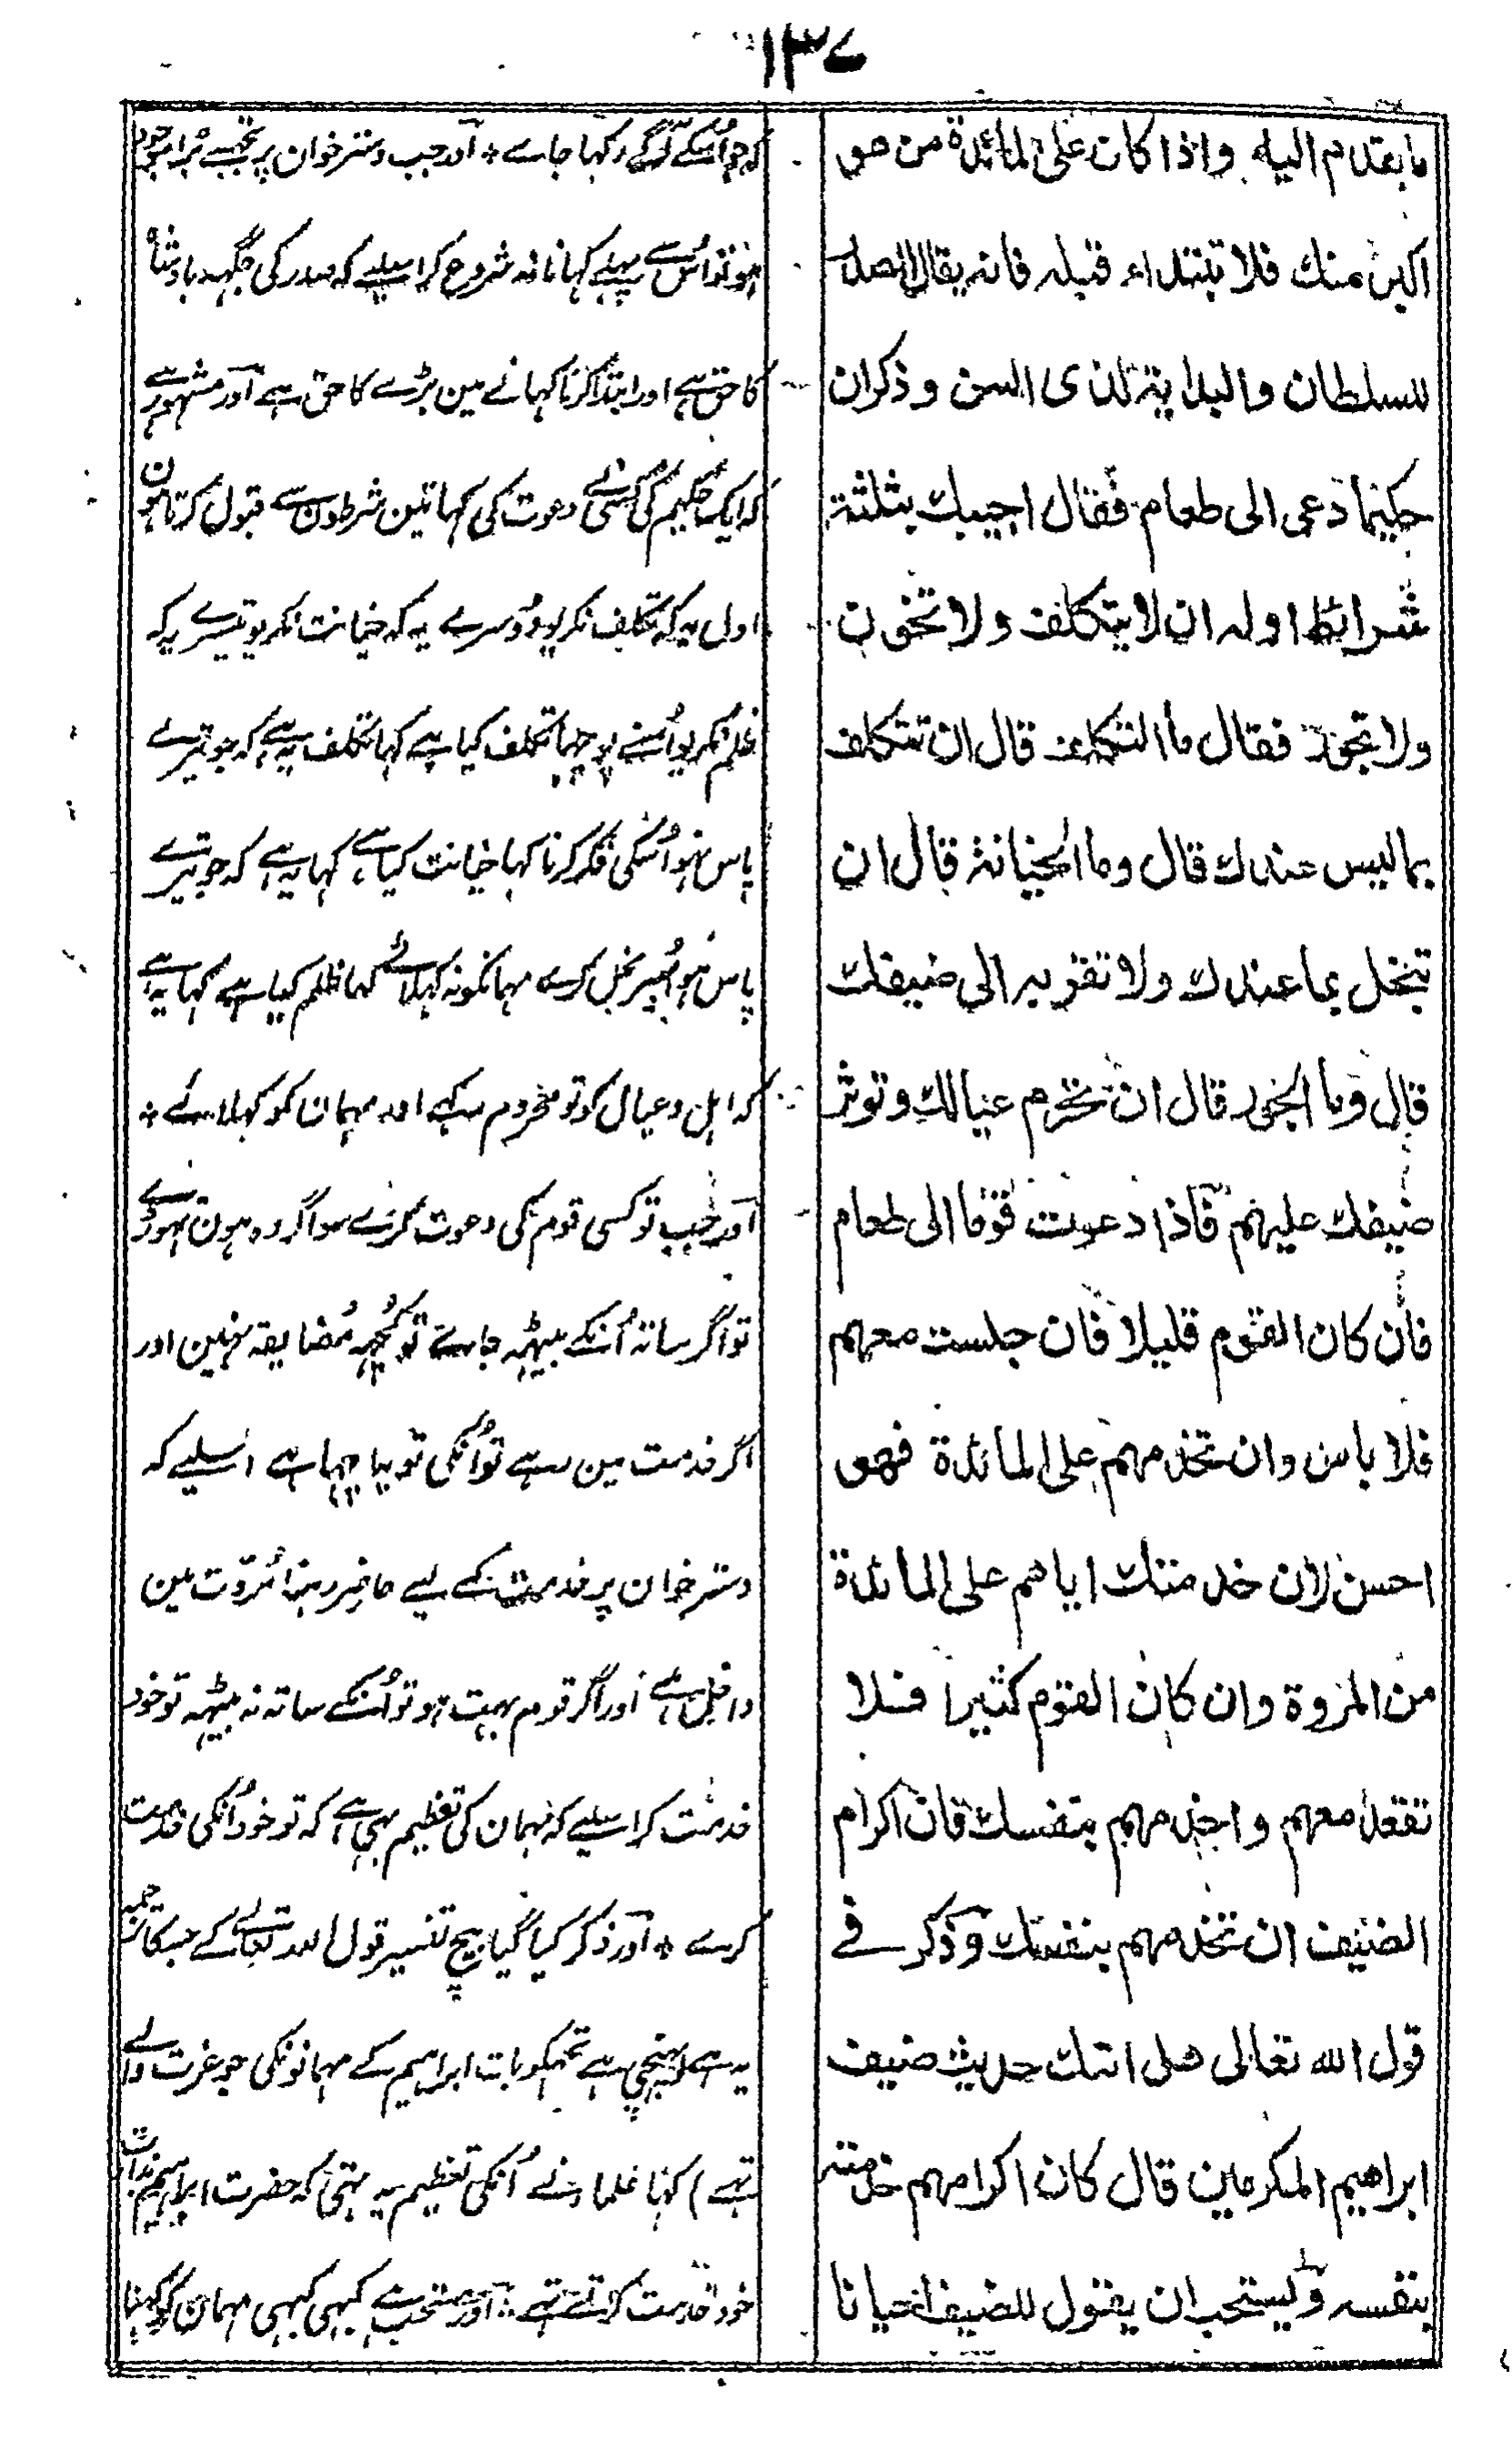 ١٣٧
ما يقدم اليه واذا كان على المائدة من هو
اكبر منك فلا تبتداء قبله فانه يقال الصدر
للسلطان والبداية لذى السن وذكر ان
حكيما دعى الى طعام فقال اجيبك بثلثة
شرائط اوله ان لا يتكلف ولا تخون
ولا تجور فقال ما التكلف قال ان تتكلف
بما ليس عندك قال وما الخيانة قال ان
تبخل بما عندك ولا تقربه الى ضيفك
قال وما الجور قال ان تحرم عيالك وتوثر
ضيفك عليهم فاذا دعوت قوما الى طعام
فان كان القوم قليلا فان جلست معهم
فلا باس وان تخدمهم على المائدة فهو
احسن لان خدمتك اياهم على المائدة
من المروة وان كان القوم كثيرا فلا
تقعد معهم واخدمهم بنفسك فان اكرام
الضيف ان تخدمهم بنفسك وذكر فے
قول الله تعالى هل اتىك حديث ضيف
ابراهيم المكرمين قال كان اكرامهم خدمته
بنفسه ويستحب ان يقول للضيف احيانا
کہ جو اُسکے آگے رکہا جاے * اور جب دسترخوان پر تجہسے بڑا موجود
ہو تو اُس سے پہلے کہانا نہ شروع کر اسلیے کہ صدر کی جگہہ بادشاہ
کا حق ہے اور ابتدا کرنا کہانے مین بڑے کا حق ہے اور مشہور ہے
کہ ایک حکیم کی کسی نے دعوت کی کہا تین شرطون سے قبول کرتا ہون
اول یہ کہ تکلف نکریو دوسرے یہ کہ خیانت نکریو تیسرے یہ کہ
ظلم نکریو اُسنے پوچہا تکلف کیا ہے کہا تکلف یہ ہے کہ جو تیرے
پاس نہو اُسکی فکر کرنا کہا خیانت کیا ہے کہا یہ ہے کہ جو تیرے
پاس ہو اُسپر بخل کرے مہمانکو نہ کہلائے کہا ظلم کیا ہے کہا یہ ہے
کہ اہل وعیال کو تو محروم رکہے اور مہمان کو کہلائے *
اور جب تو کسی قوم کی دعوت کرے سو اگر وہ ہون تہوڑے
تو اگر ساتہ اُنکے بیٹہہ جاے تو کُچہہ مُضایقہ نہین اور
اگر خدمت مین رہے تو اُنکی تو یا چہا ہے اسلیے کہ
دسترخوان پر خدمت کے لیے حاضر رہنا مُروّت مین
داخل ہے اور اگر قوم بہت ہو تو اُنکے ساتہ نہ بیٹہہ تو خود
خدمت کر اسلیے کہ مہمان کی تعظیم یہی ہے کہ تو خود اُنکی خدمت
کرے * اور ذکر کیا گیا بیچ تفسیر قول اللہ تعالے کے جسکا ترجمہ
یہ ہے (پہنچی ہے تجہکو بات ابراہیم کے مہمانونکی جو عزت والے
تہے) کہا علما نے اُنکی تعظیم یہ تہی کہ حضرت ابراہیم بذات
خود خدمت کرتے تہے * اور مستحب ہے کبہی کبہی مہمان کو کہنا